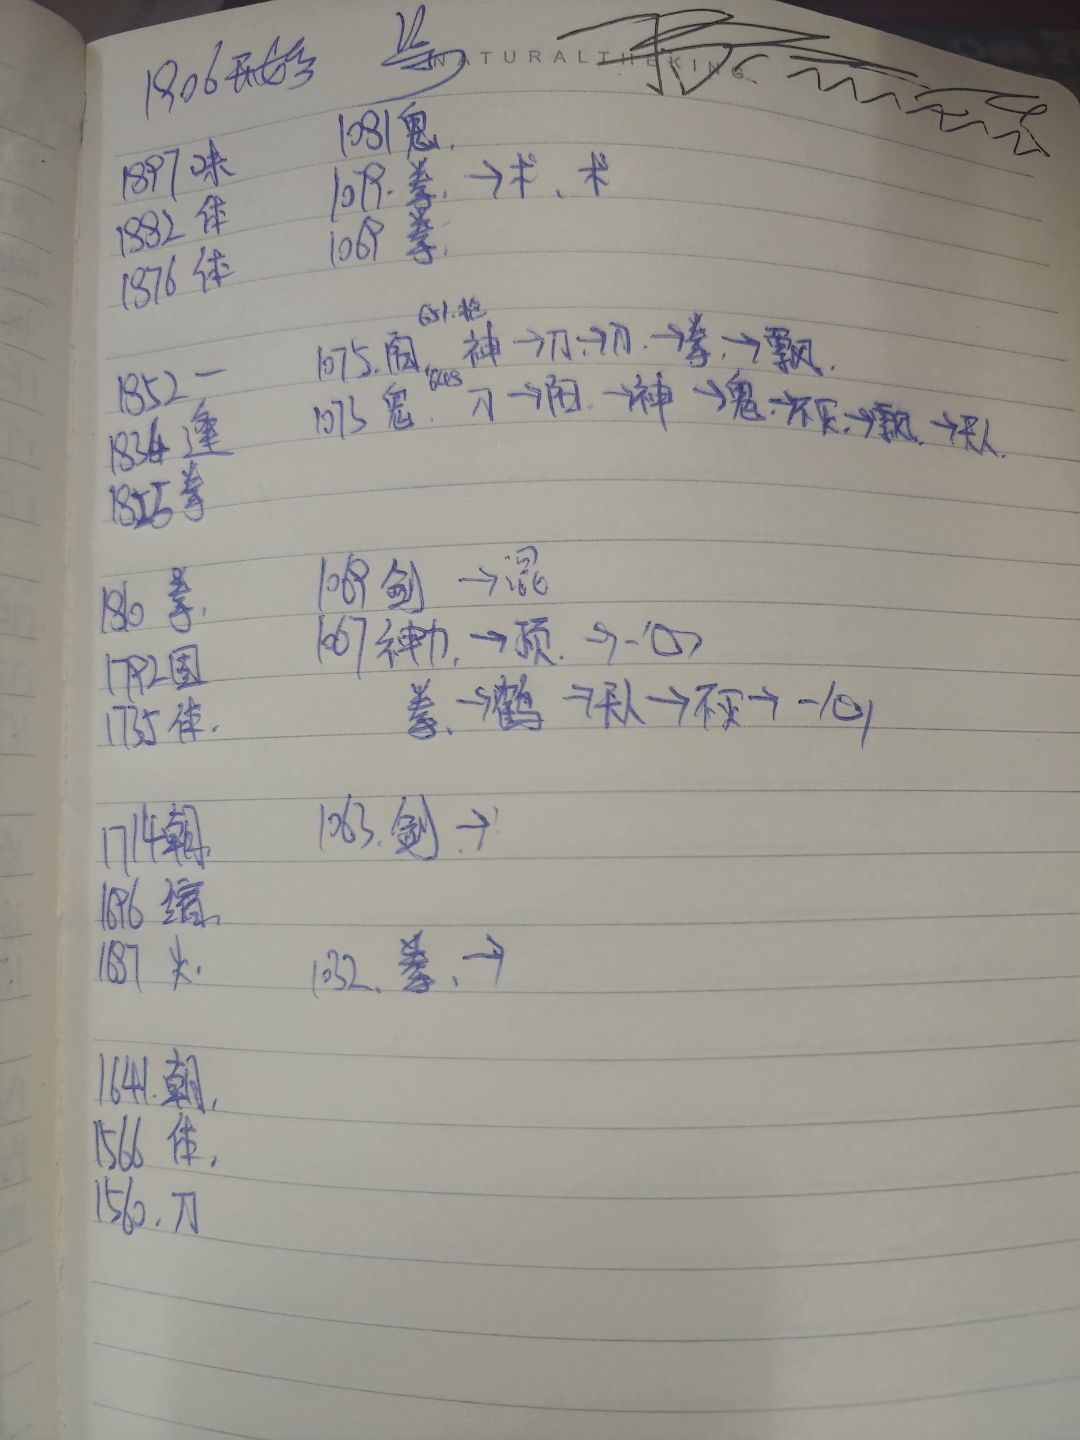 1906开始
NATURALTHEKING
1897 味
1081 鬼.
1882 体
1079. 拳. →术、术
1876 体
1069 拳.
651.枪
1852 一
1075. 神→刀→刀.→拳.→飘.
1834 逢
1073 鬼. 刀→阳.→神→鬼.→飘.→
1855 拳
1860 拳.
1069 剑 →混
1792 国
1067 神力. →顶. →
1735 体.
拳. →鹤→
1714 朝.
1063. 剑.→
1696 缩.
1687 头.
1032. 拳. →
1641. 朝.
1566 体.
1560. 刀